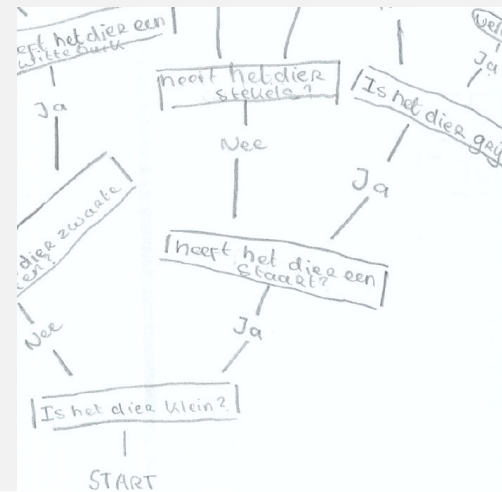 eeft het dier een
witte buik
Ja
heeft het dier
stekels?
Nee
Ja
Is het dier grij
Ja
dier zwarte
en?
heeft het dier een
staart?
Nee
Ja
Is het dier klein?
START